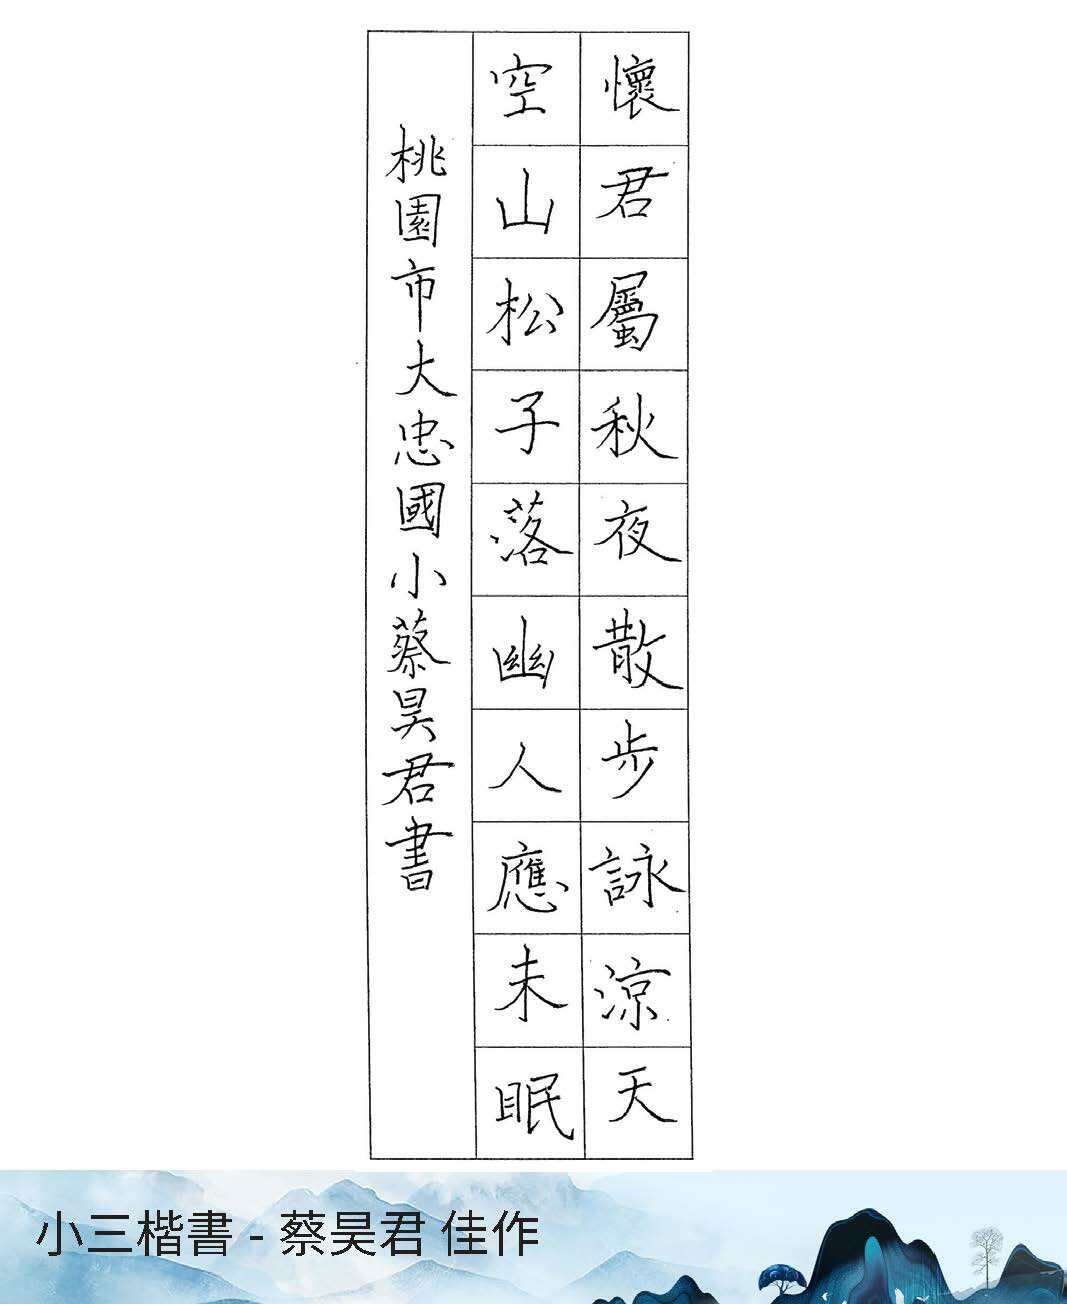 懷君屬秋夜散步詠涼天
空山松子落幽人應未眠
桃園市大忠國小蔡昊君書
小三楷書 - 蔡昊君 佳作